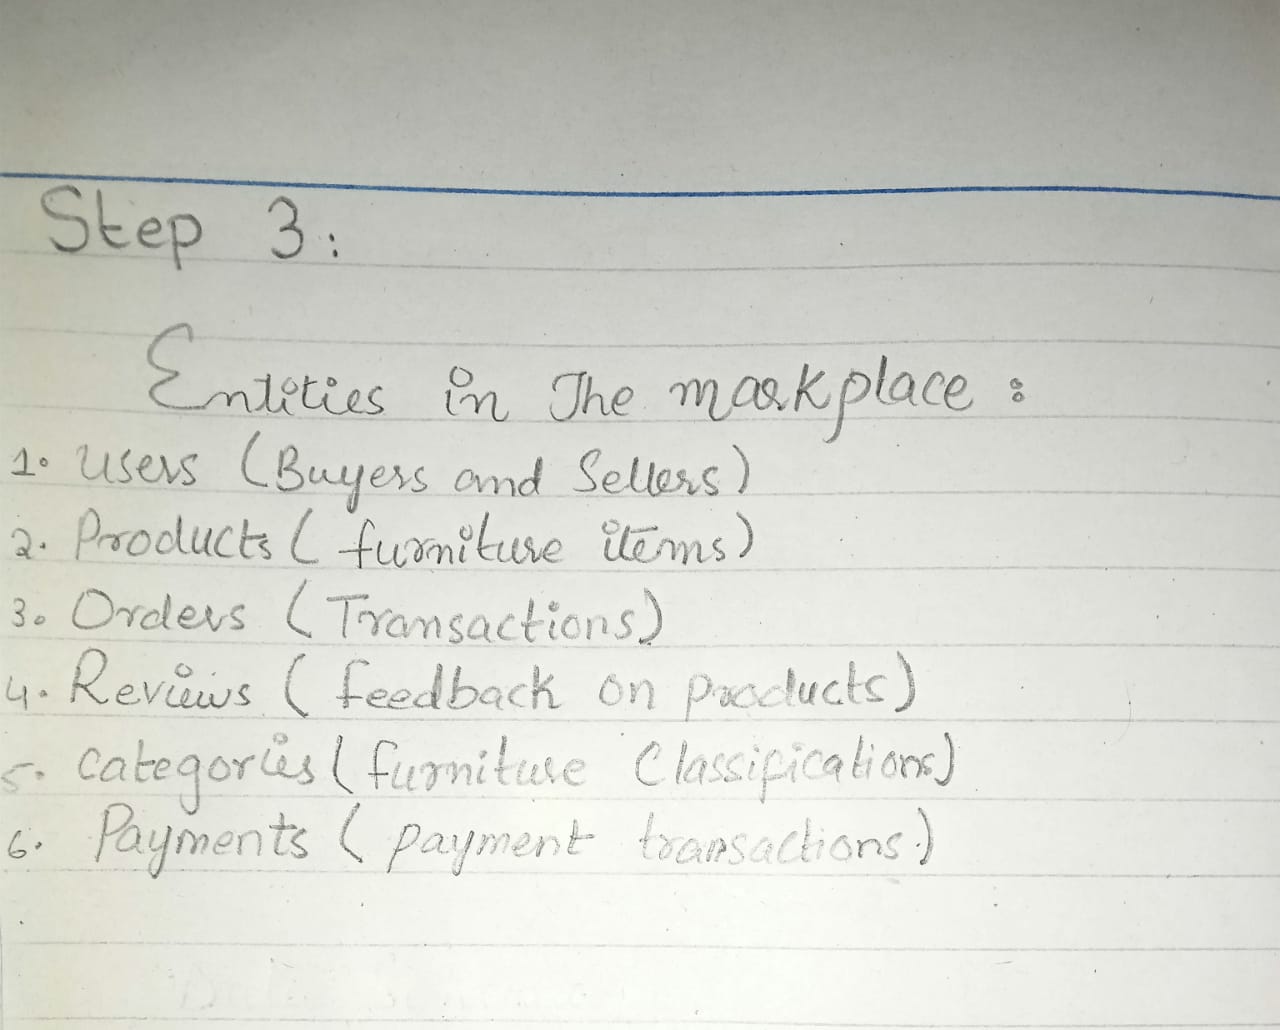 Step 3:
Entities in The markplace :
1. Users (Buyers and Sellers)
2. Products ( furniture items)
3. Orders (Transactions)
4. Reviews ( feedback on products)
5. categories ( furniture Classifications)
6. Payments ( payment transactions.)